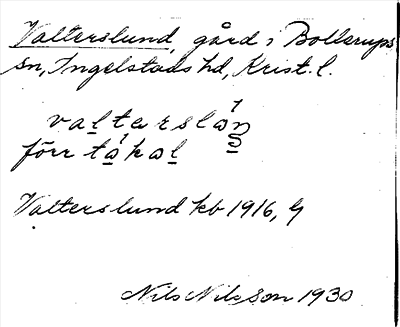 Valterslund, gård i Bollerups
sn, Ingelstads hd, Krist. l.
valtersloṉ
förr takal
Valterslund kb 1916, G
Nils Nilsson 1930